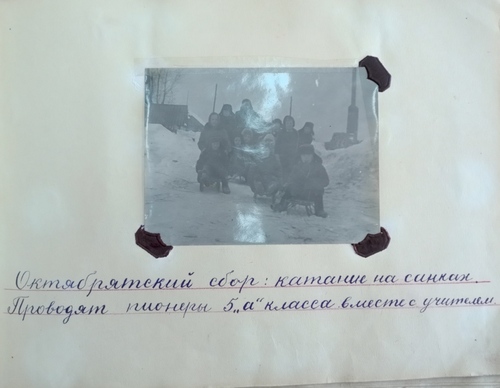 Октябрятский сбор: катание на санках.
Проводят пионеры 5„а“ класса вместе с учителем